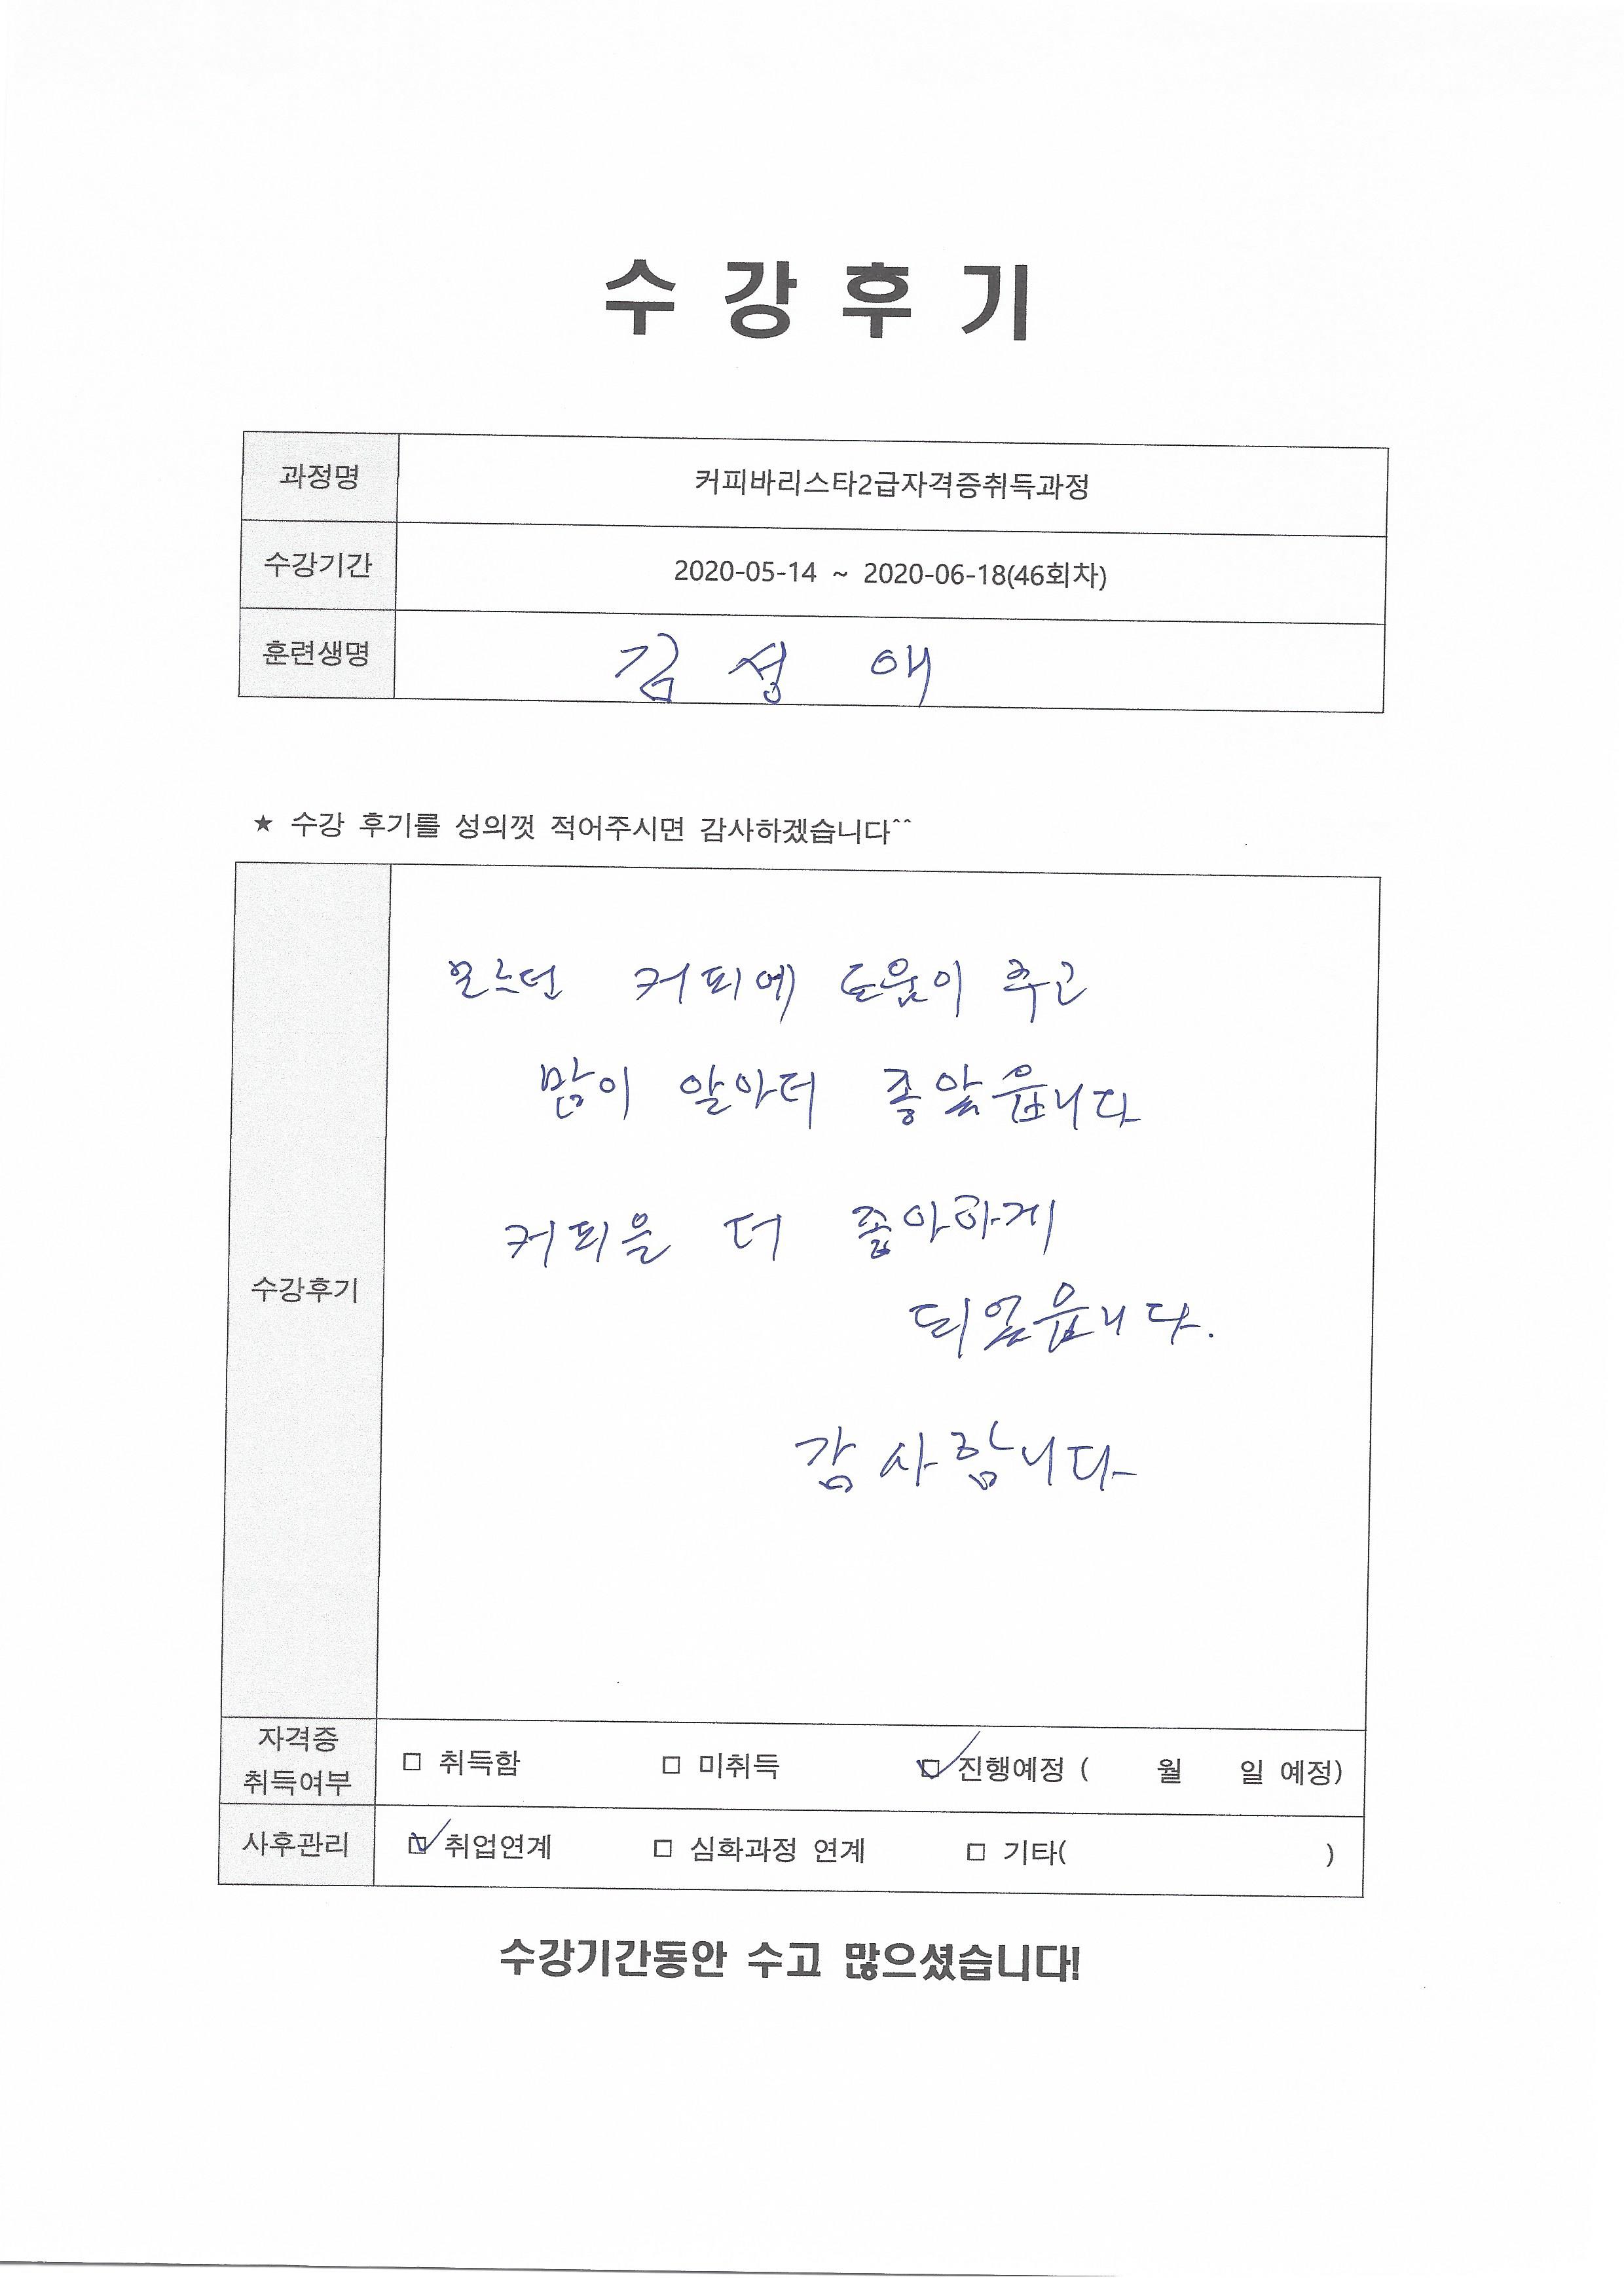 수 강 후 기
과정명 커피바리스타2급자격증취득과정
수강기간 2020-05-14 ~ 2020-06-18(46회차)
훈련생명 김 성 애
★ 수강 후기를 성의껏 적어주시면 감사하겠습니다^^
수강후기
모르던 커피에 도움이 주고
많이 알아더 좋았읍니다
커피을 더 좋아하게
되었읍니다.
감사합니다
자격증 취득여부 □ 취득함 □ 미취득 ☑ 진행예정 ( 월 일 예정)
사후관리 ☑ 취업연계 □ 심화과정 연계 □ 기타( )
수강기간동안 수고 많으셨습니다!